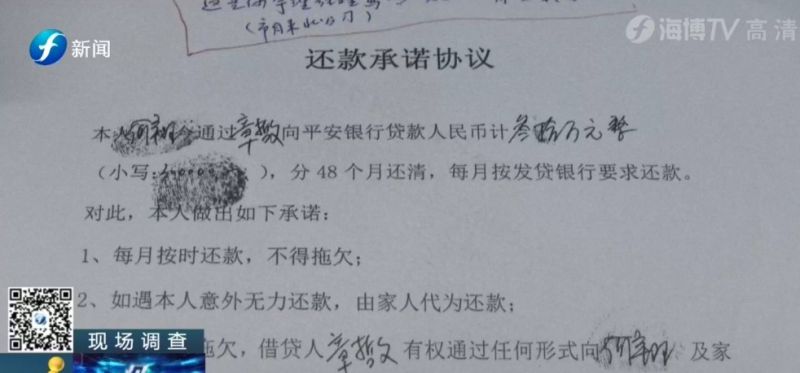 新闻
海博TV高清
还款承诺协议
本人今通过章撒向平安银行贷款人民币计叁拾万元整
（小写： ），分 48 个月还清，每月按发贷银行要求还款。
对此，本人做出如下承诺：
1、每月按时还款，不得拖欠；
2、如遇本人意外无力还款，由家人代为还款；
拖欠，借贷人章 有权通过任何形式向 及家
现场调查